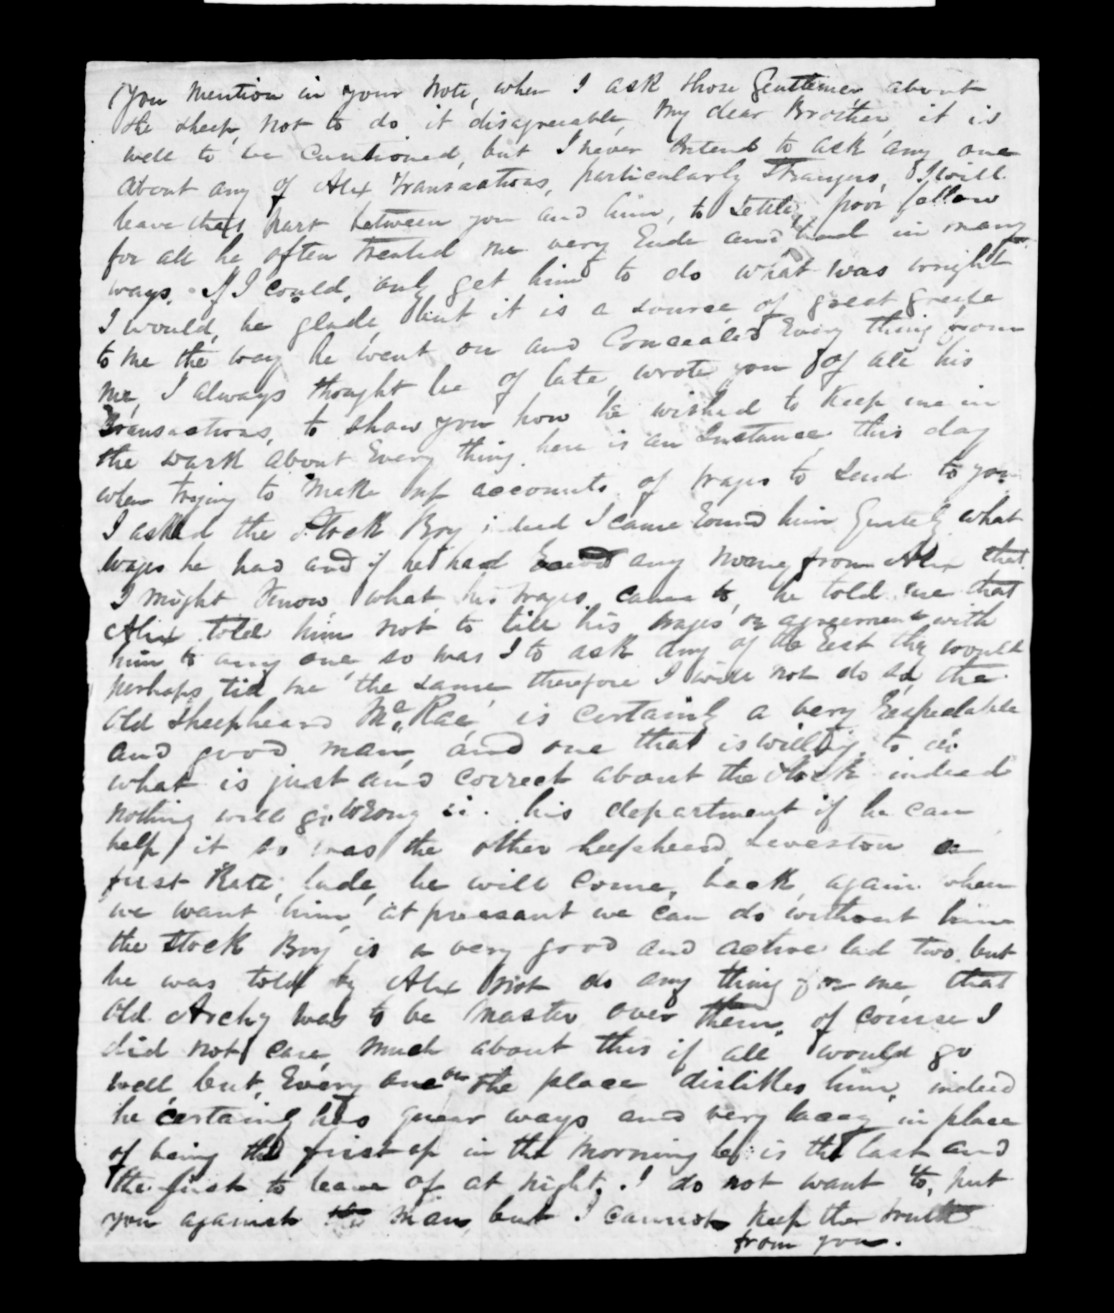 You mention in your Note, when I ask those Gentlemen about
the sheep, Not to do it disagreeable, My dear Brother, it is
well to be Cautioned, but I never Intend to ask any one
about any of Alex Transactions, particularly Strangers, I will
leave that part between you and him, to Settle, poor fellow
for all he often treated me very Rude and bad in many
ways. If I could, only get him to do what was wright
I would, be glade, but it is a source of great greife
to me the way he went on and Concealed Every thing from
me, I always thought he of late wrote you of all his
Transactions, to show you how he wished to Keep me in
the dark about Every thing. here is an Instance this day
when trying to make up accounts of wages to Send to you
I asked the Stock Boy indeed I came round him Quietly what
wages he had and if he had any money from Alex that
I might Know what his wages came to, he told me that
Alex told him not to tell his wages or agreement with
him to any one so was I to ask any of the Rest they would
perhaps tell me the same therefore I will not do so, the
old Sheepheard McRae is certainly a very Respectable
and good man, and one that is willing to do
what is just and correct about the Stock indeed
nothing will go wrong in his department if he can
help it so was the other Sheepheard, Leveston a
first Rate lade, he will Come, back again when
we want him, at preasant we can do without him
the Stock Boy is a very good and active lad two, but
he was told by Alex Not do any thing for me, that
old Archy was to be Master over them, of course I
did not care much about this if all would go
well but, Every one on the place dislikes him, indeed
he certainly has quear ways and very lazey in place
of being the first up in the Morning he is the last and
the first to leave of at Night. I do not want to, put
you against the man, but I cannot Keep the truth
from you.